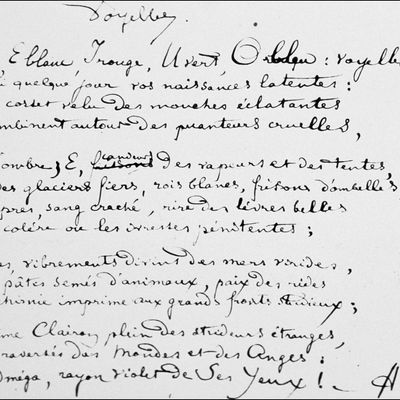 Voyelles.
E blanc, I rouge, U vert, O bleu : voyelle
quelque jour vos naissances latentes :
corset velu des mouches éclatantes
ombinent autour des puanteurs cruelles,
'ombre ; E, candeurs des vapeurs et des tentes,
des glaciers fiers, rois blancs, frissons d'ombelles
pres, sang craché, rire des lèvres belles
colère ou les ivresses pénitentes ;
es, vibrements divins des mers virides,
pâtis semés d'animaux, paix des rides
chimie imprime aux grands fronts studieux ;
me Clairon plein des strideurs étranges,
raversés des Mondes et des Anges :
Oméga, rayon violet de Ses Yeux ! — A